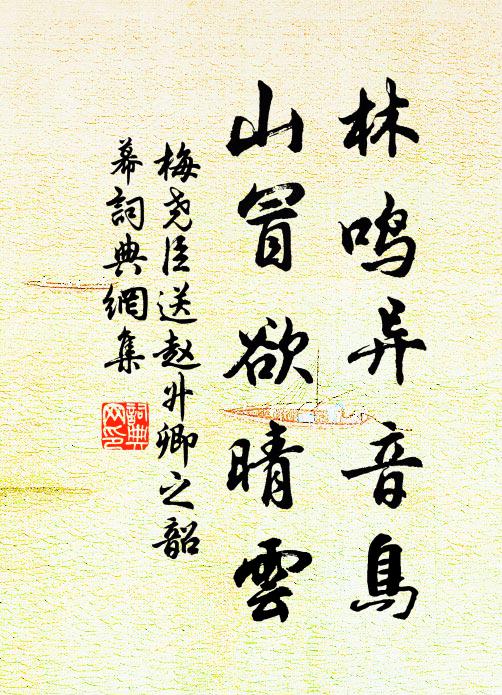 林鸣异音鳥
山冒欲晴雲
梅尧臣送赵升卿之韶
幕詞典網集
詞典
网印